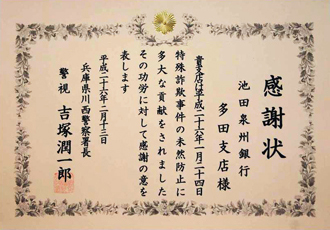 感謝状
池田泉州銀行
多田支店様
貴支店は平成二十六年一月二十四日
特殊詐欺事件の未然防止に
多大な貢献をされました
その功労に対して感謝の意を
表します
平成二十六年二月十三日
兵庫県川西警察署長
警視 吉塚潤一郎